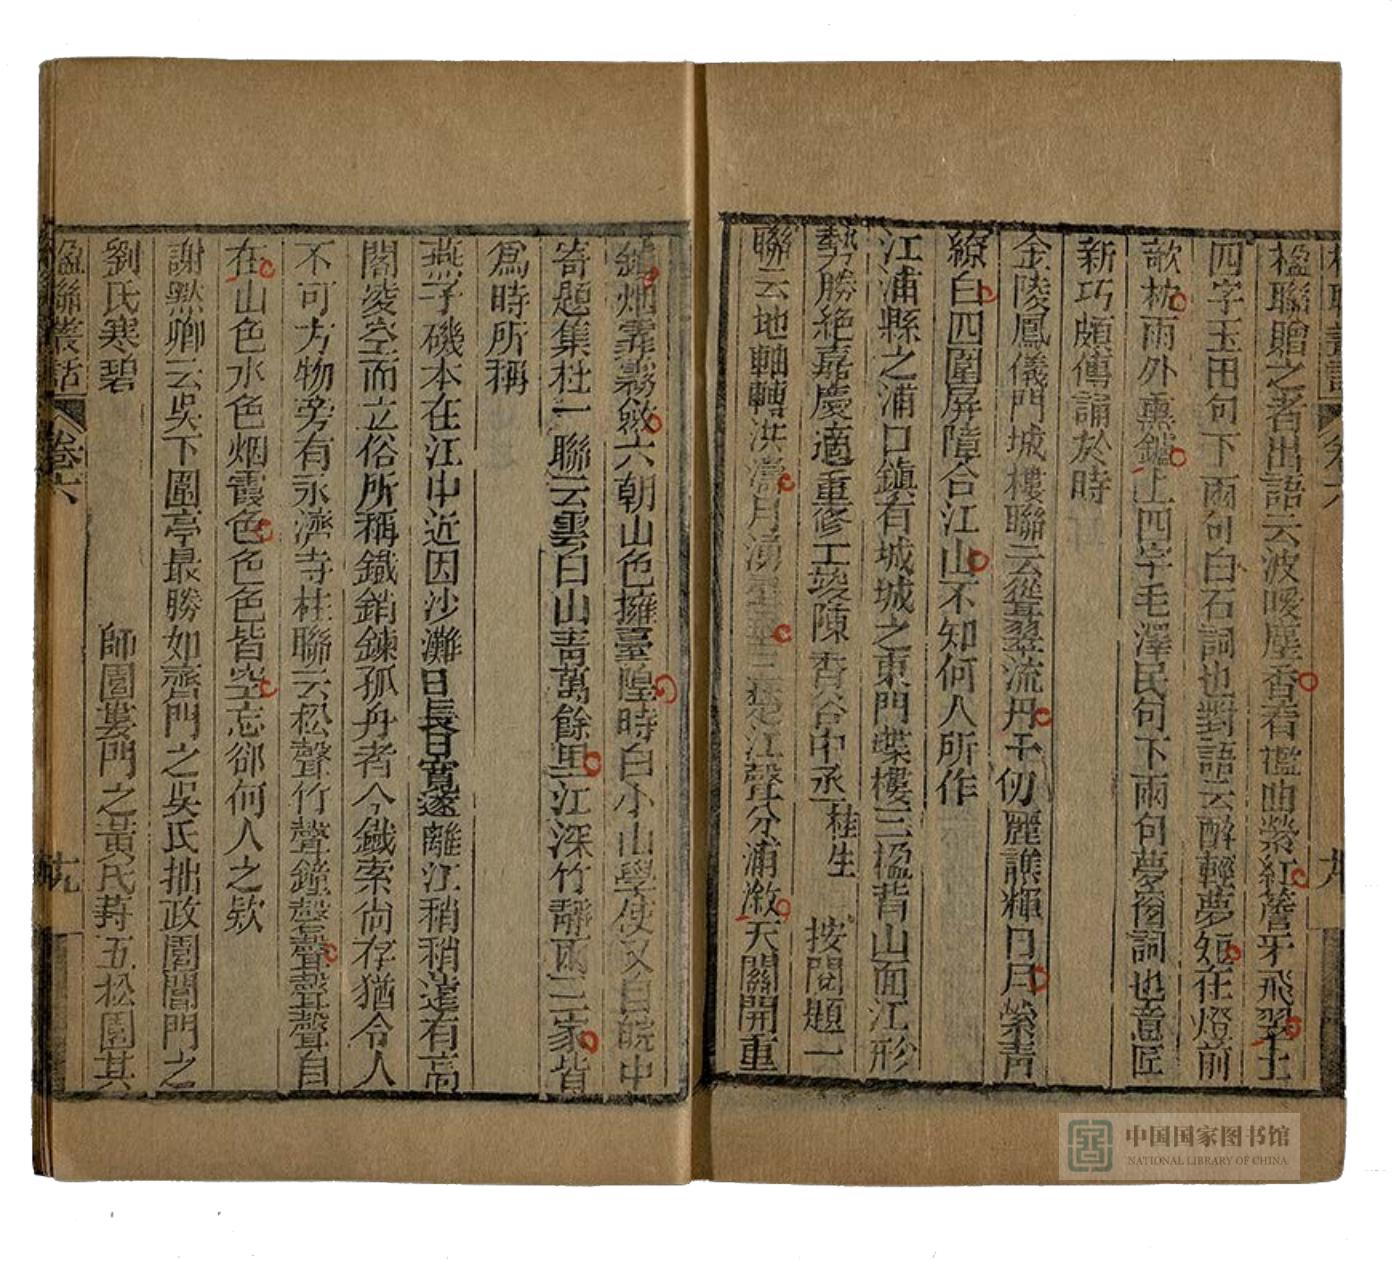 楹聯叢話 卷六 九
楹聯贈之者出語云波暖塵香看檻曲縈紅簷牙飛翠上
四字玉田句下兩句白石詞也對語云醉輕夢短在燈前
欹枕雨外熏鑪上四字毛澤民句下兩句夢窗詞也意匠
新巧頗傳誦於時
金陵鳳儀門城樓聯云聳翠流丹千仞麗譙輝日月縈青
繚白四圍屏障合江山不知何人所作
江浦縣之浦口鎮有城城之東門蝶樓三楹背山面江形
勢勝絕嘉慶適重修工竣陳香谷中丞桂生按閱題一
聯云地軸轉洪濤月湧星垂三楚江聲分浦漵天關開重
鎮烟霏霧斂六朝山色擁臺隍時白小山學使又自皖中
寄題集杜一聯云雲白山青萬餘里江深竹靜兩三家皆
爲時所稱
燕子磯本在江中近因沙灘日長日寬遂離江稍稍遠有高
閣凌空而立俗所稱鐵銷鍊孤舟者今鐵索尚存猶令人
不可方物旁有永濟寺柱聯云松聲竹聲鐘磬聲聲聲自
在山色水色烟霞色色色皆空忘郤何人之欵
謝默卿云吳下園亭最勝如齊門之吳氏拙政園閶門之
劉氏寒碧 師園婁門之黃氏葑 五松園其
楹聯叢話 卷六 十九
中国国家图书馆
NATIONAL LIBRARY OF CHINA